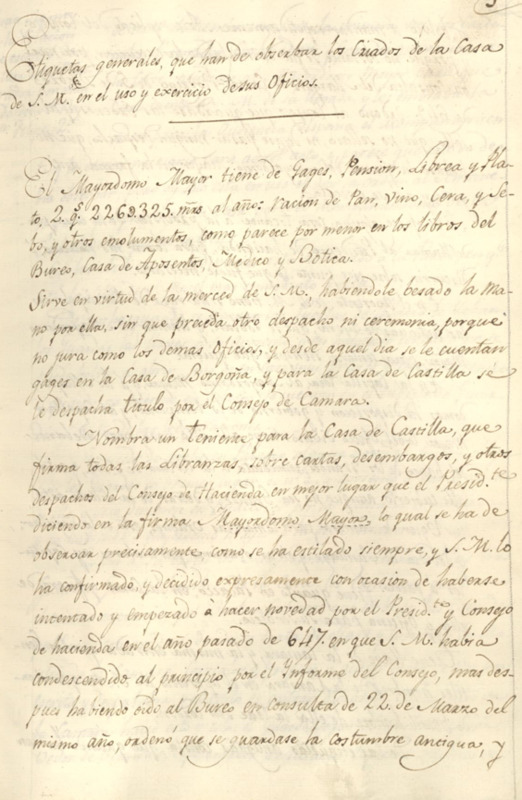 Etiquetas generales, que han de obserbar los Criados de la Casa
de S. M.ᵈ en el uso y exercicio de sus Oficios.
El Mayordomo Mayor tiene de Gages, Pension, Librea y Pla-
to, 2. q.ˢ 2269.325. mrs al año: racion de Pan, vino, Cera, y Se-
bo, y otros emolumentos, como parece por menor en los libros del
Bureo, Casa de Aposentos, Medico y Botica.
Sirve en virtud de la merced de S. M., habiendole besado la Ma-
no por ella, sin que preceda otro despacho ni ceremonia, porque
no jura como los demas Oficios, y desde aquel dia se le cuentan
gages en la Casa de Borgoña, y para la Casa de Castilla se
le despacha titulo por el Consejo de Camara.
Nombra un teniente para la Casa de Castilla, que
firma todas las Libranzas, sobre cartas, desembargos, y otros
despachos del Consejo de Hacienda en mejor lugar que el Presid.ᵗᵉ
diciendo en la firma Mayordomo Mayor, lo qual se ha de
observar precisamente, como se ha estilado siempre, y S. M. lo
ha confirmado, y decidido expresamente con ocasion de haberse
intentado y empezado a hacer novedad por el Presid.ᵗᵉ y Consejo
de hacienda en el año pasado de 647. en que S. M. habia
condescendido al principio por el Informe del Consejo, mas des-
pues habiendo oido al Bureo en consulta de 22. de Marzo del
mismo año, ordenó que se guardase la costumbre antigua, y